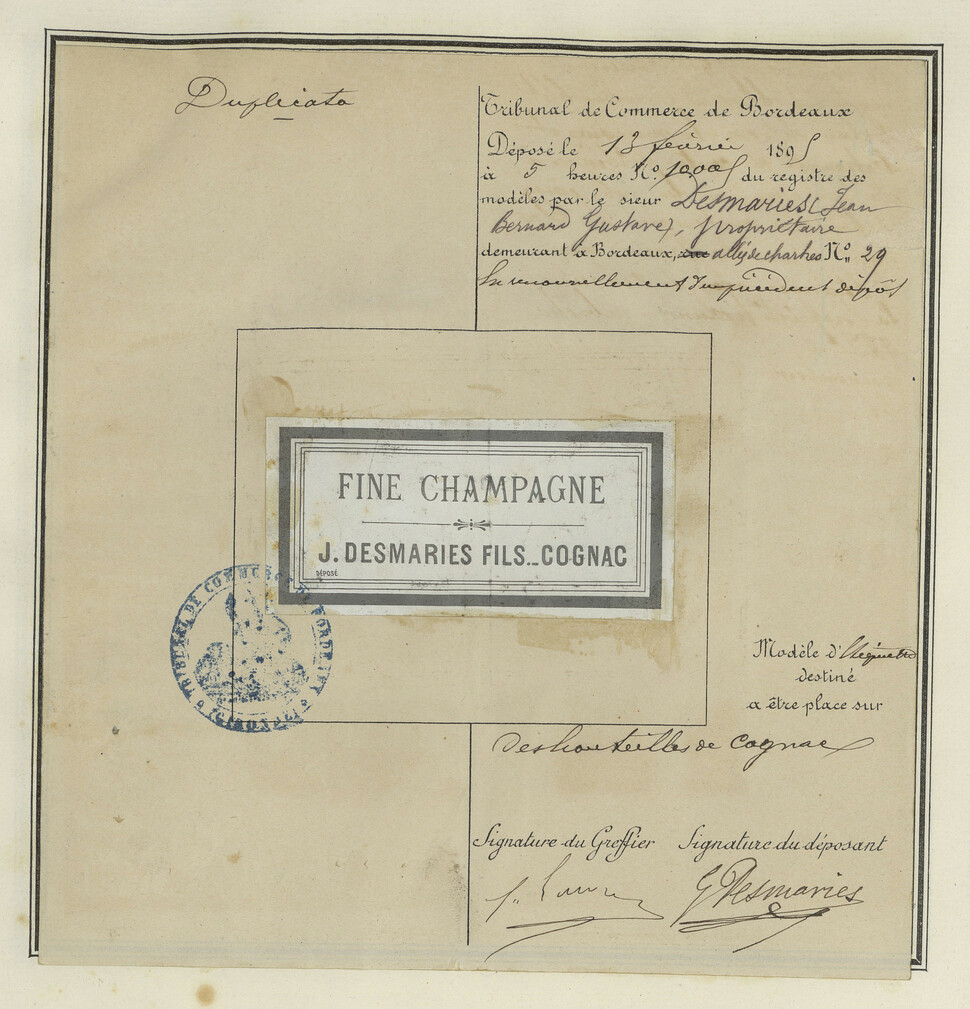 Duplicata
Tribunal de Commerce de Bordeaux
Déposé le 13 février 1895
à 5 heures N° 10005 du registre des
modèles par le sieur Desmaries (Jean
Bernard Gustave), propriétaire
demeurant à Bordeaux, rue allées de chartres N° 29
En renouvellement d'un précédent dépôt
FINE CHAMPAGNE
J. DESMARIES FILS_COGNAC
DÉPOSÉ
TRIBUNAL DE COMMERCE DE BORDEAUX
Modèle d'étiquette
destiné
a être place sur
des bouteilles de cognac
Signature du Greffier Signature du déposant
G Desmaries